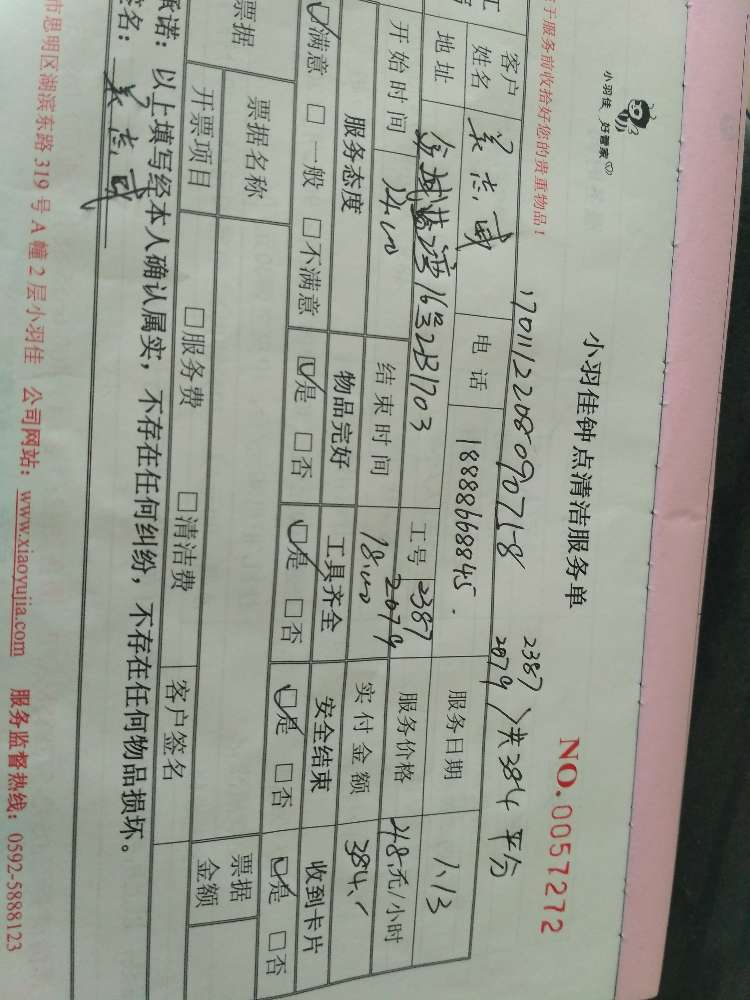 小羽佳 好管家
小羽佳钟点清洁服务单
NO.0057272
于服务前收拾好您的贵重物品!
2387
2079 共384 平分
客户姓名 吴志威 电话 18888668845. 服务日期 1.13
地址 16号2331703 工号 2387 2079 服务价格 48.元/小时
开始时间 14:00 结束时间 18:00 实付金额 384.
服务态度 物品完好 工具齐全 安全结束 收到卡片
☑满意 □一般 □不满意 ☑是 □否 ☑是 □否 ☑是 □否 ☑是 □否
票据 票据名称 □服务费 □清洁费 票据金额
开票项目 客户签名
承诺:以上填写经本人确认属实,不存在任何纠纷,不存在任何物品损坏。
签名:吴志威
市思明区湖滨东路 319 号 A 幢 2 层小羽佳 公司网站:www.xiaoyujia.com 服务监督热线:0592-5888123